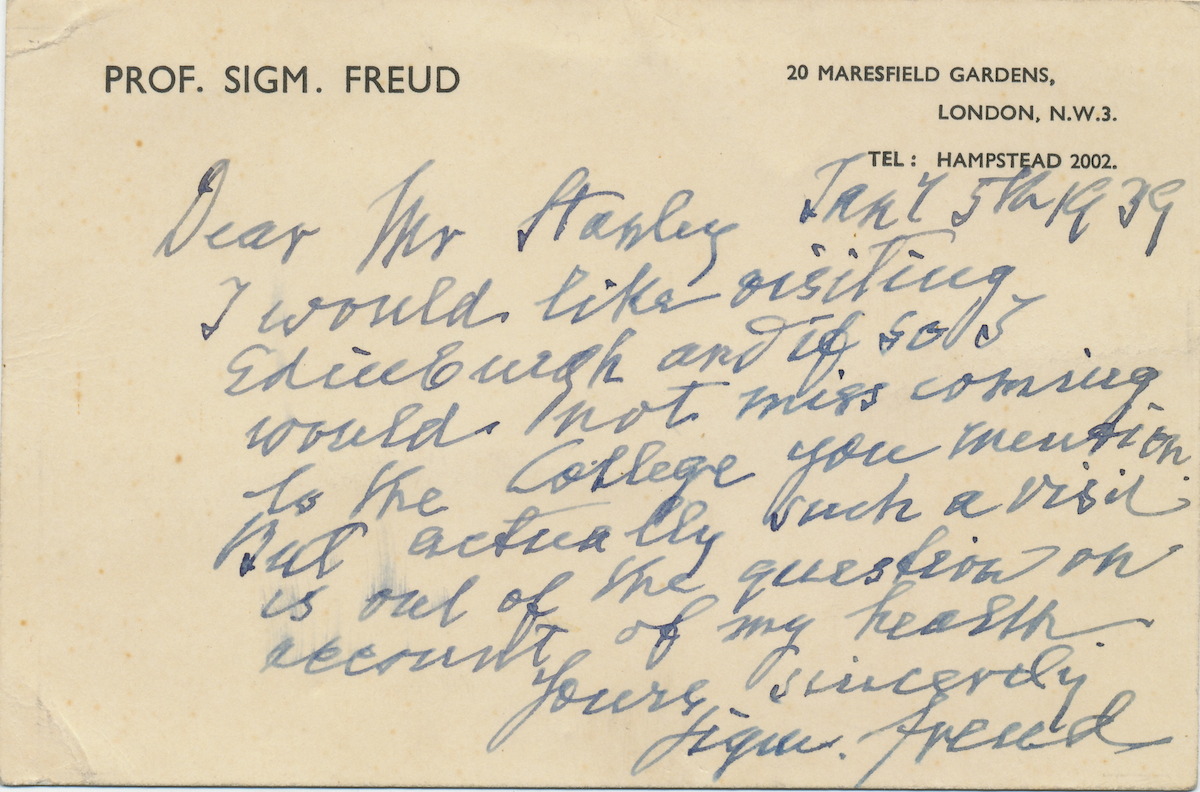 PROF. SIGM. FREUD
20 MARESFIELD GARDENS,
LONDON, N.W.3.
TEL: HAMPSTEAD 2002.
Jan 5th 1939
Dear Mr Stanley
I would like visiting
Edinburgh and if so I
would not miss coming
to the College you mention.
But actually such a visit
is out of the question on
account of my health.
Yours sincerely
Sigm. Freud